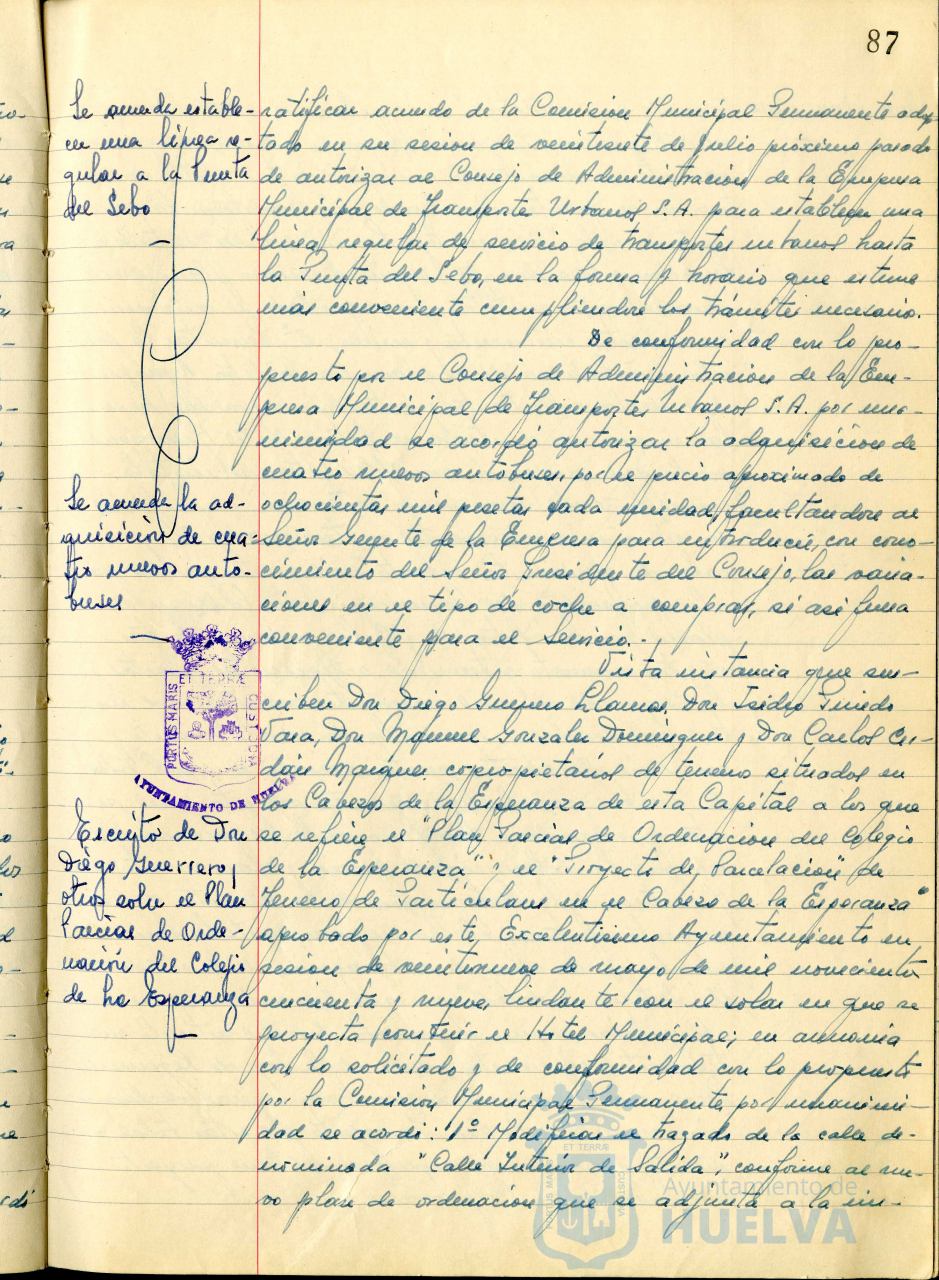 87
Se acuerda estable-
cer una línea re-
gular a la Punta
del Sebo
ratificar acuerdo de la Comision Municipal Permanente adop-
tado en su sesion de veintisiete de Julio próximo pasado
de autorizar al Consejo de Administración de la Empresa
Municipal de Transportes Urbanos S.A. para establecer una
linea regular de servicio de transportes urbanos hasta
la Punta del Sebo, en la forma y horario que estime
más conveniente cumpliendose los trámites necesario.
De conformidad con lo pro-
puesto por el Consejo de Administracion de la Em-
presa Municipal de Transportes Urbanos S.A. por una-
nimidad se acordó autorizar la adquisición de
cuatro nuevos autobuses, por el precio aproximado de
ochocientas mil pesetas cada unidad, facultandose al
Señor Gerente de la Empresa para introducir, con cono-
cimiento del Señor Presidente del Consejo, las varia-
ciones en el tipo de coche a comprar, si asi fuera
conveniente para el servicio.-
Se acuerda la ad-
quisición de cua-
tro nuevos auto-
buses
PORTUS MARIS ET TERRÆ CUSTODIA
AYUNTAMIENTO DE HUELVA
Vista instancia que sus-
criben Don Diego Guerrero Llamas, Don Isidro Pinedo
Vara, Don Manuel Gonzalez Dominguez y Don Carlos Cer-
dán Marquez copropietarios de terreno situados en
los Cabezos de la Esperanza de esta Capital a los que
se refiere el "Plan Parcial de Ordenacion del Colegio
de la Esperanza" y el "Proyecto de Parcelacion" de
Terreno de Particulares en el Cabezo de la Esperanza"
aprobado por este Excelentisimo Ayuntamiento en
sesion de veintinueve de mayo de mil novecientos
cincuenta y nueve, lindante con el solar en que se
proyecta construir el Hotel Municipal; en armonia
con lo solicitado y de conformidad con lo propuesto
por la Comision Municipal Permanente, por unanimi-
dad se acordó: 1º Modificar el trazado de la calle de-
nominada "Calle Interior de Salida", conforme al nue-
vo plan de ordenacion que se adjunta a la ins-
Escrito de Don
Diego Guerrero y
otros sobre el Plan
Parcial de Orde-
nación del Colegio
de la Esperanza
Ayuntamiento de
HUELVA